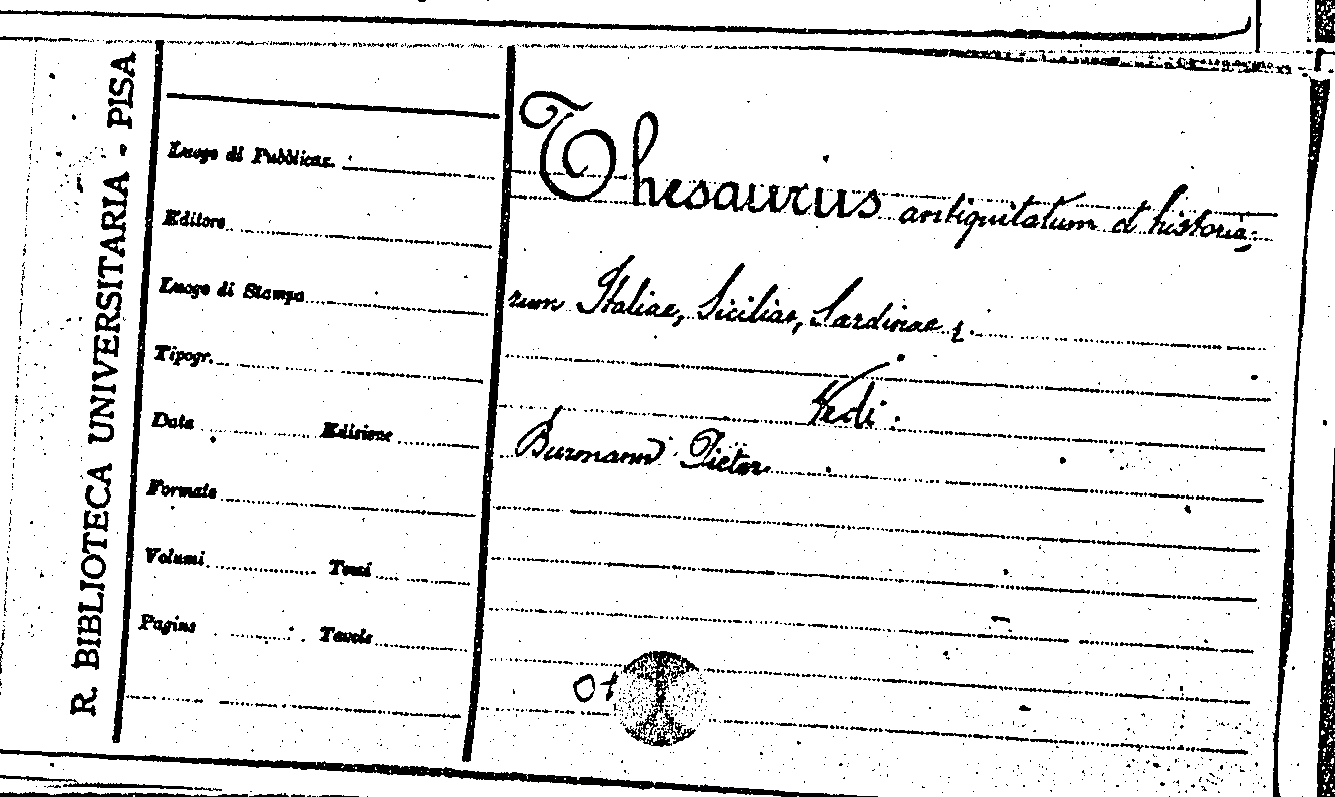 R. BIBLIOTECA UNIVERSITARIA - PISA
Luogo di Pubblicaz.
Editore
Luogo di Stampa
Tipogr.
Data Edizione
Formato
Volumi Tomi
Pagine Tavole
Thesaurus antiquitatum et historia,
rum Italiae, Siciliae, Sardinae
Vedi:
Burmann Pieter